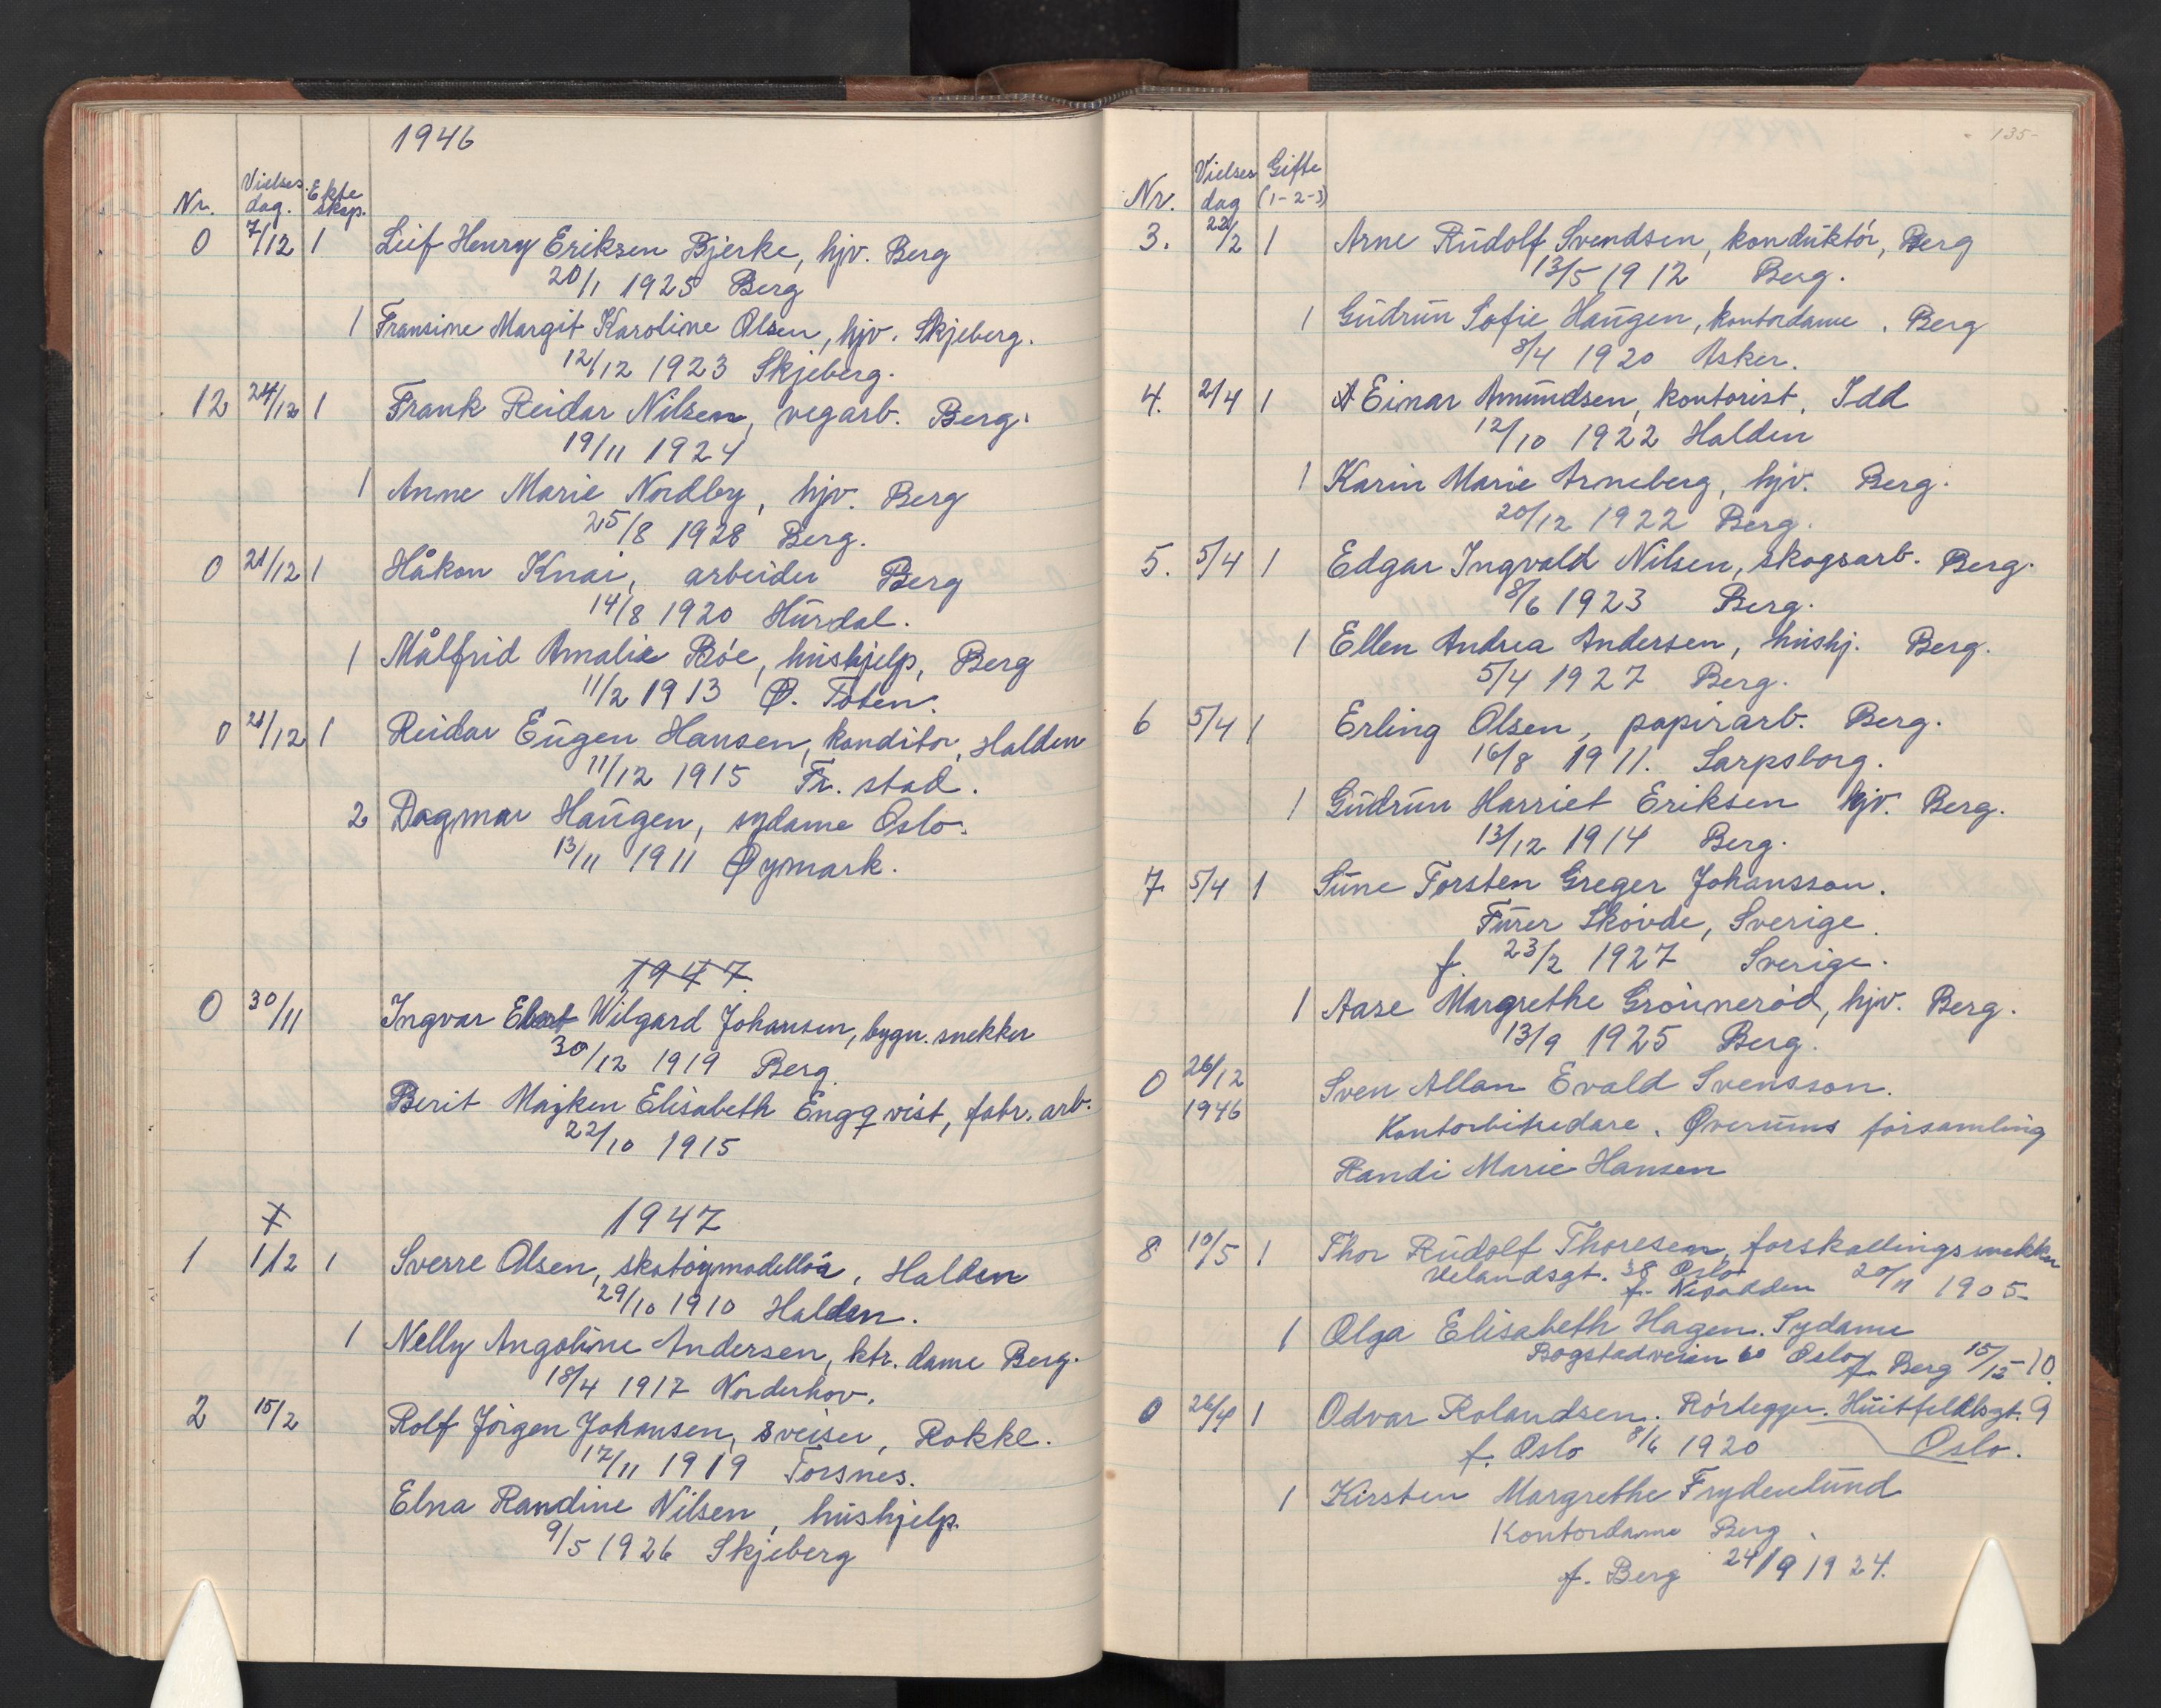 1946
Nr. Vielses dag. Ekte skap.
0 7/12 1 Leif Henry Eriksen Bjerke, hjv. Berg
20/1 1925 Berg
1 Fransine Margit Karoline Olsen, hjv. Skjeberg.
12/12 1923 Skjeberg.
12 24/12 1 Frank Reidar Nilsen, vegarb. Berg.
19/11 1924
1 Anne Marie Nordby, hjv. Berg
25/8 1928 Berg.
0 21/12 1 Håkon Knai, arbeider Berg
14/8 1920 Hurdal.
1 Målfrid Amalie Bøe, hushjelp, Berg
11/2 1913 Ø. Toten.
0 21/12 1 Reidar Eugen Hansen, konditor, Halden
11/12 1915 Fr. stad.
2 Dagmar Haugen, sydame Oslo.
13/11 1911 Øymark.
1947.
0 30/11 Ingvar Wilgard Johansen, bygn. snekker
30/12 1919 Berg.
Berit Majken Elisabeth Engqvist, fabr. arb.
22/10 1915
1947
1 1/2 1 Sverre Olsen, skotøymodellør, Halden
29/10 1910 Halden.
1 Nelly Angoline Andersen, ktr. dame Berg.
18/4 1917 Norderhov.
2 15/2 Rolf Jörgen Johansen, sveiser, Rokke.
17/11 1919 Torsnes.
Elna Randine Nilsen, hushjelp.
9/5 1926 Skjeberg
135
Nr. Vielses dag Gifte (1-2-3)
3. 22/2 1 Arne Rudolf Svendsen, konduktór, Berg
13/5 1912 Berg.
1 Gudrun Sofie Haugen, kontordame, Berg
8/4 1920 Asker.
4. 2/4 1 A Einar Amundsen, kontorist, Idd
12/10 1922 Halden
1 Karin Marie Arneberg, hjv. Berg.
20/12 1922 Berg.
5. 5/4 1 Edgar Ingvald Nilsen, skogsarb. Berg.
8/6 1923 Berg.
1 Ellen Andrea Andersen, hushj. Berg.
5/4 1927 Berg.
6 5/4 1 Erling Olsen, papirarb. Berg.
16/8 1911. Sarpsborg.
1 Gudrun Harriet Eriksen hjv. Berg.
13/12 1914 Berg.
7 5/4 1 Sune Torsten Greger Johansson.
Furer Skövde, Sverige.
f. 23/2 1927 Sverige.
1 Aase Margrethe Grönneród, hjv. Berg.
13/9 1925 Berg.
0 26/12 Sven Allan Evald Svensson.
1946 Kontorbitredare, Øverums församling
Randi Marie Hansen
8 10/5 1 Thor Rudolf Thoresen, forskallingssnekker
Velandsgt. 38 Oslo
f. Nesodden 20/11 1905-
1 Olga Elisabeth Hagen. Sydame
Bogstadveien 60 Oslo f. Berg 15/12-10.
0 26/4 1 Odvar Rolandsen. Rörlegger. Huitfeldtsgt. 9
f. Oslo 8/6 1920 Oslo.
1 Kirsten Margrethe Frydenlund
Kontordame Berg.
f. Berg 24/9 1924.